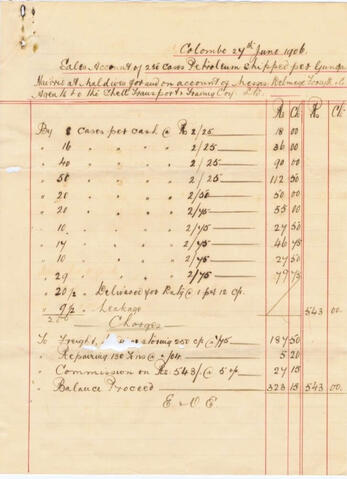 Colombo 27th June 1906.
Sales Account of 250 cases Petroleum shipped per Gunga
at Maldives for and on account of Messrs Delmege Forsyth & Co
Agents to the Shell Transport & Trading Coy Ltd.
Rs Cts Rs Cts
By 8 cases per cash @ Rs 2/25 — 18 00
" 16 " " " " 2/25 — 36 00
" 40 " " " " 2/25 — 90 00
" 50 " " " " 2/25 — 112 50
" 20 " " " " 2/50 — 50 00
" 20 " " " " 2/75 — 55 00
" 10 " " " " 2/75 — 27 50
" 17 " " " " 2/75 — 46 75
" 10 " " " " 2/75 — 27 50
" 29 " " " " 2/75 — 79 75
" 20/2 " Delivered for @ 1 per 12 cp.
" 9/2 " Leakage — 543 00.
250
Charges
To Freight, storing 250 cp @ /75 — 187 50
" Repairing 130 Tins @ — 5 20
" Commission on Rs. 543/. @ 5 o/o — 27 15
" Balance Proceed — 323 15 543 00.
E. & O. E